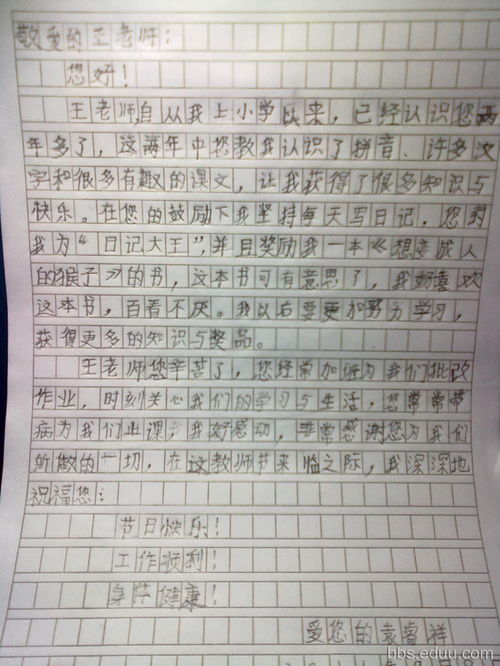 敬爱的王老师：
您好！
王老师,自从我上小学以来，已经认识您两
年多了，这两年中您教我认识了拼音、许多汉
字和很多有趣的课文，让我获得了很多知识与
快乐。在您的鼓励下我坚持每天写日记，您封
我为“日记大王”,并且奖励我一本《想变成人
的猴子》的书，这本书可有意思了，我好喜欢
这本书，百看不厌。我以后要更加努力学习，
获得更多的知识与奖品。
王老师您辛苦了，您经常加班为我们批改
作业，时刻关心我们的学习与生活，您常常带
病为我们上课，我好感动，非常感谢您为我们
所做的一切，在这教师节来临之际，我深深地
祝福您：
节日快乐！
工作顺利！
身体健康！
爱您的袁睿祥
bbs.eduu.com